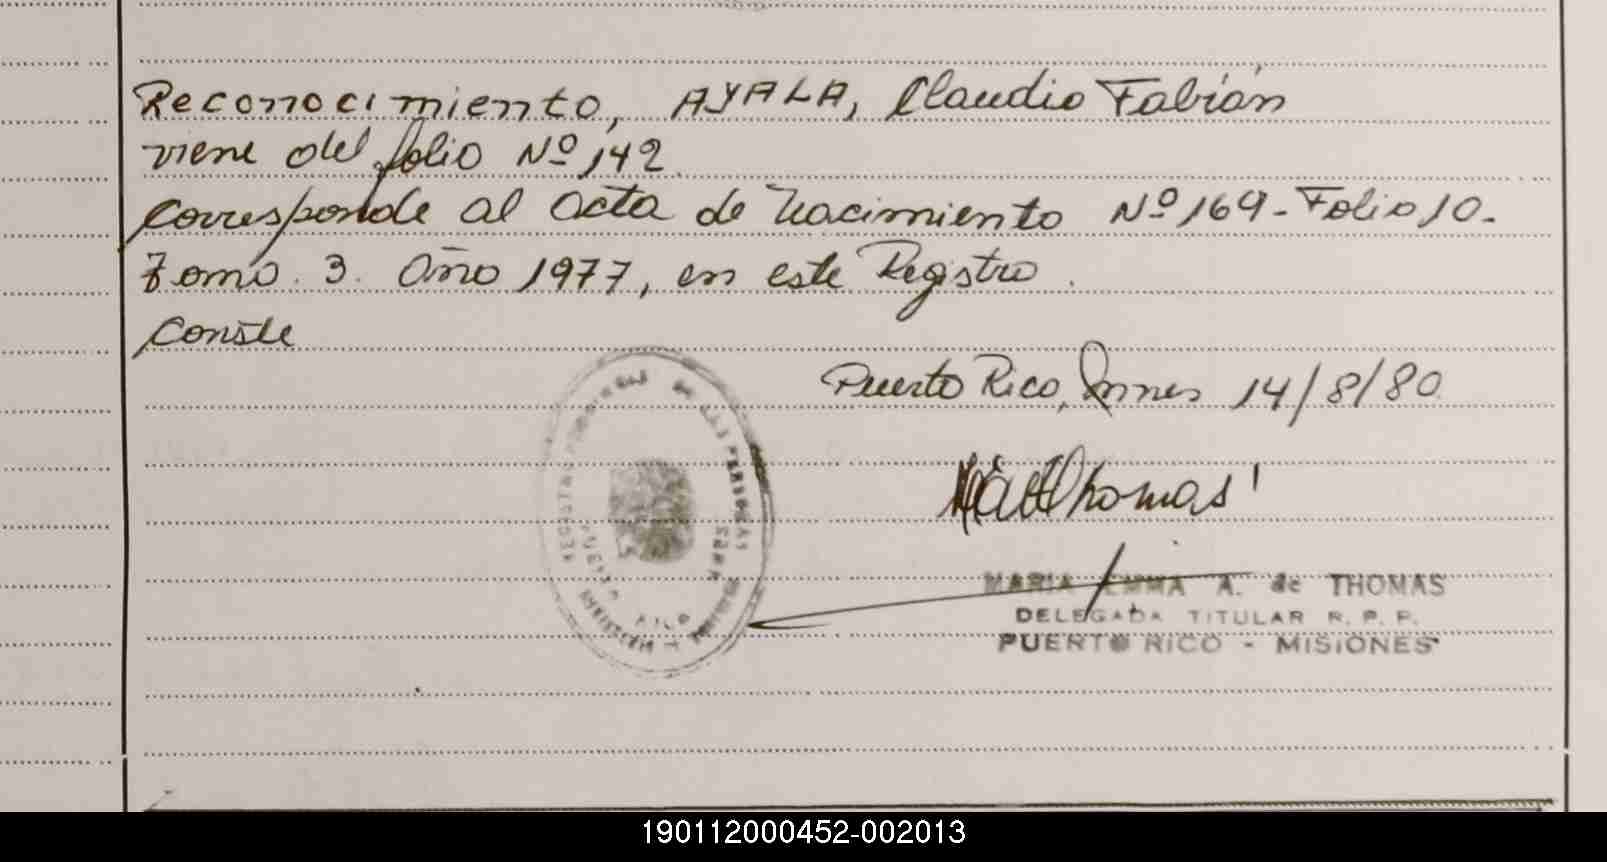 Reconocimiento, AYALA, Claudio Fabián
viene del folio Nº 142
Corresponde al acta de nacimiento Nº 169 - Folio 10-
Tomo. 3. Año 1977, en este Registro.
Conste
Puerto Rico, Mnes 14/8/80
Thomas
MARIA EMMA A. de THOMAS
DELEGADA TITULAR R. P. P.
PUERTO RICO - MISIONES
DE LAS PERSONAS
PUERTO RICO
MISIONES
190112000452-002013